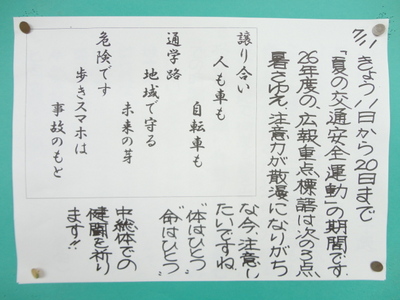 7/11 きょう11日から20日まで
「夏の交通安全運動」の期間です
26年度の、広報重点標語は次の3点
暑さゆえ、注意力が散漫になりがち
な今、注意し
たいですね
"体はひとつ
命はひとつ"
中総体での
健闘を祈り
ます!!
譲り合い
人も車も
自転車も
通学路
地域で守る
未来の芽
危険です
歩きスマホは
事故のもと